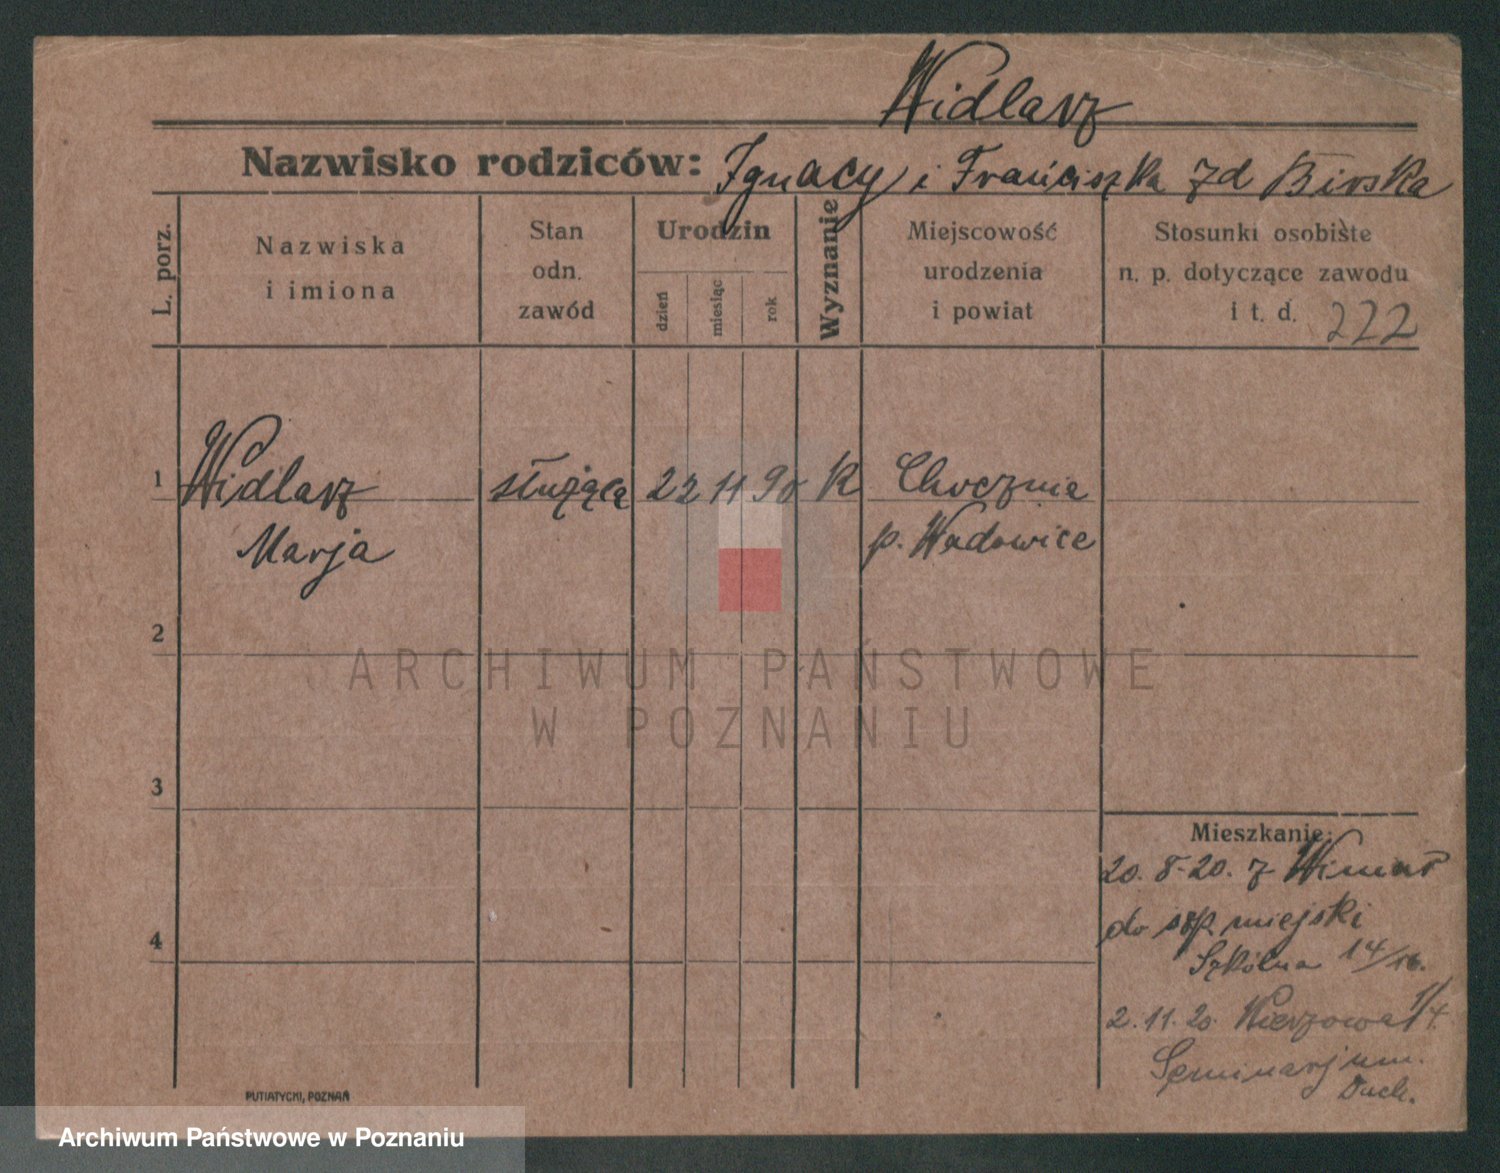 Widlarz
Nazwisko rodziców: Ignacy i Franciszka zd Birska
L. porz.
Nazwiska
i imiona
Stan
odn.
zawód
Urodzin
dzień
miesiąc
rok
Wyznanie
Miejscowość
urodzenia
i powiat
Stosunki osobiste
n. p. dotyczące zawodu
i t. d. 222
1 Widlarz służąca 22 11 90 K Chocznia
Marja p. Wadowice
2
ARCHIWUM PAŃSTWOWE
W POZNANIU
3
Mieszkanie:
20.8.20. z
do szp. miejski
4
Szkólna 14/16.
2.11.20
Seminarjum.
Duch.
PUTIATYCKI, POZNAŃ
Archiwum Państwowe w Poznaniu